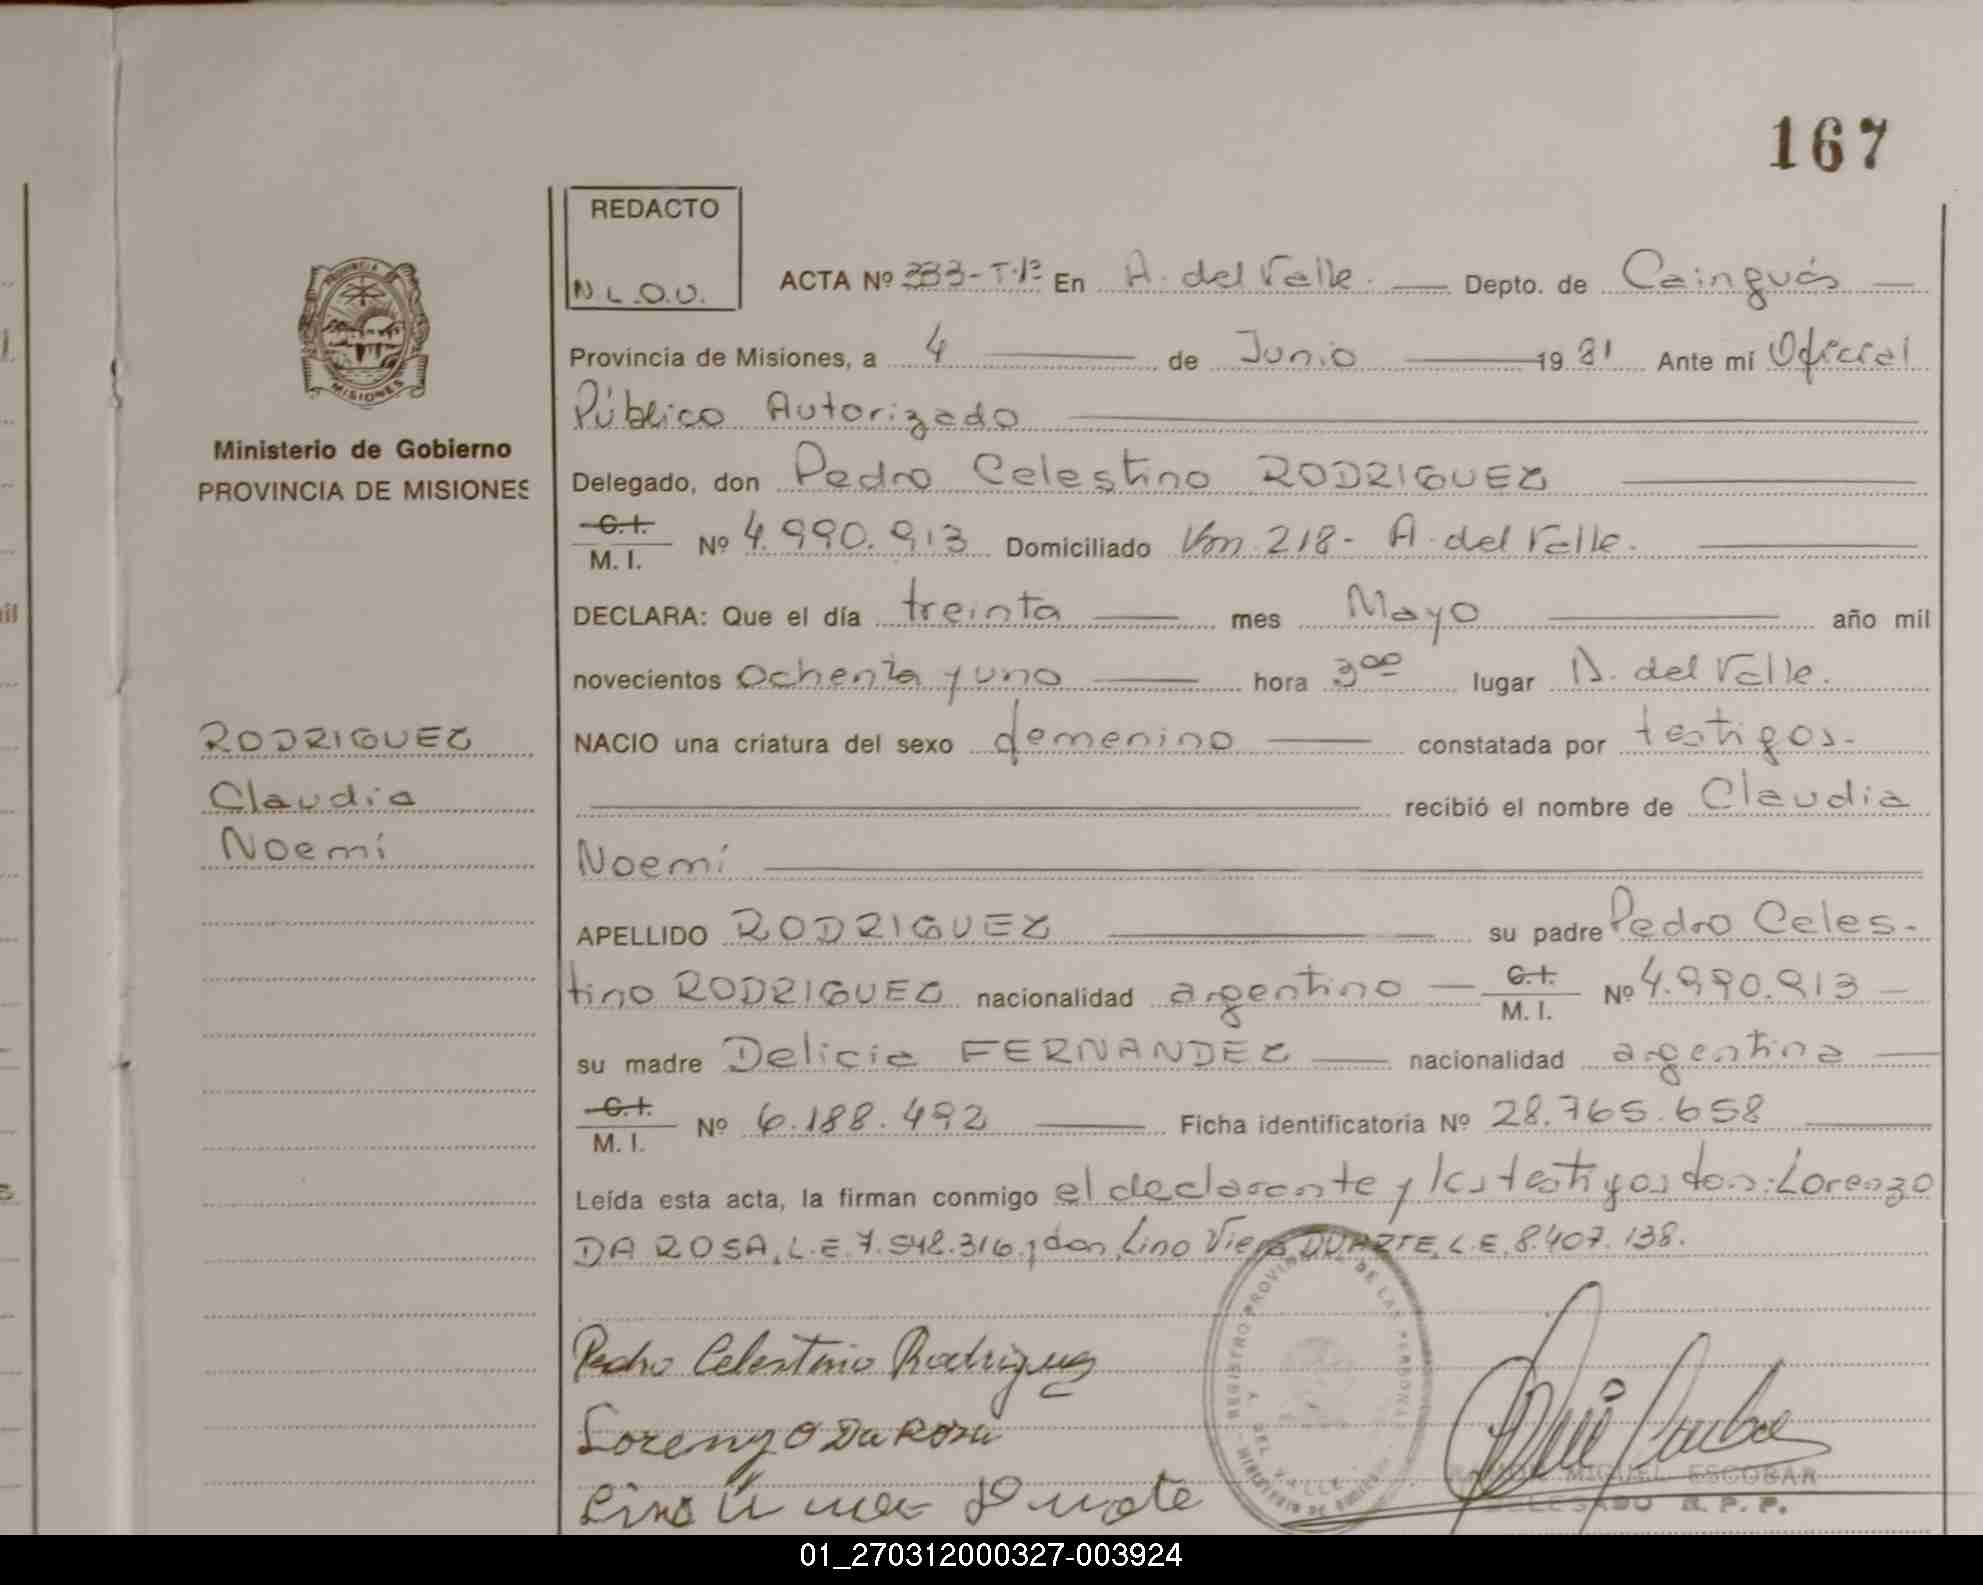 167
REDACTO
N.L.O.V.
ACTA Nº 333-T·1º En A. del Valle. Depto. de Cainguás
Provincia de Misiones, a 4 de Junio 19 81 Ante mi Oficial
Público Autorizado
Ministerio de Gobierno
PROVINCIA DE MISIONES
Delegado, don Pedro Celestino RODRIGUEZ
C.I.
M. I. Nº 4.990.913 Domiciliado Km 218- A. del Valle.
DECLARA: Que el día treinta mes Mayo año mil
novecientos ochenta y uno hora 3⁰⁰ lugar A. del Valle.
RODRIGUEZ
Claudia
Noemí
NACIO una criatura del sexo femenino constatada por testigos.
recibió el nombre de Claudia
Noemí
APELLIDO RODRIGUEZ su padre Pedro Celes-
tino RODRIGUEZ nacionalidad argentino C.I. M. I. Nº 4.990.913
su madre Delicia FERNANDEZ nacionalidad argentina
C.I.
M. I. Nº 6.188.492 Ficha identificatoria Nº 28.765.658
Leída esta acta, la firman conmigo el declarante y los testigos don: Lorenzo
DA ROSA, L.E. 7.548.316 y don Lino Viera DUARTE, L.E. 8.407.138.
Pedro Celestino Rodriguez
Lorenzo Da Rosa
Lino Duarte
REGISTRO PROVINCIAL DE LAS PERSONAS
DEL VALLE
MINISTERIO DE GOBIERNO
RAMON MIGUEL ESCOBAR
DELEGADO R.P.P.
01_270312000327-003924